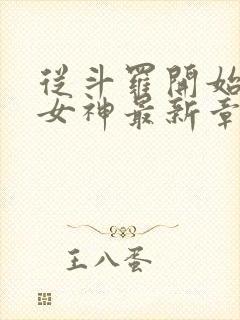 從斗羅開始
女神最新章
王八蛋